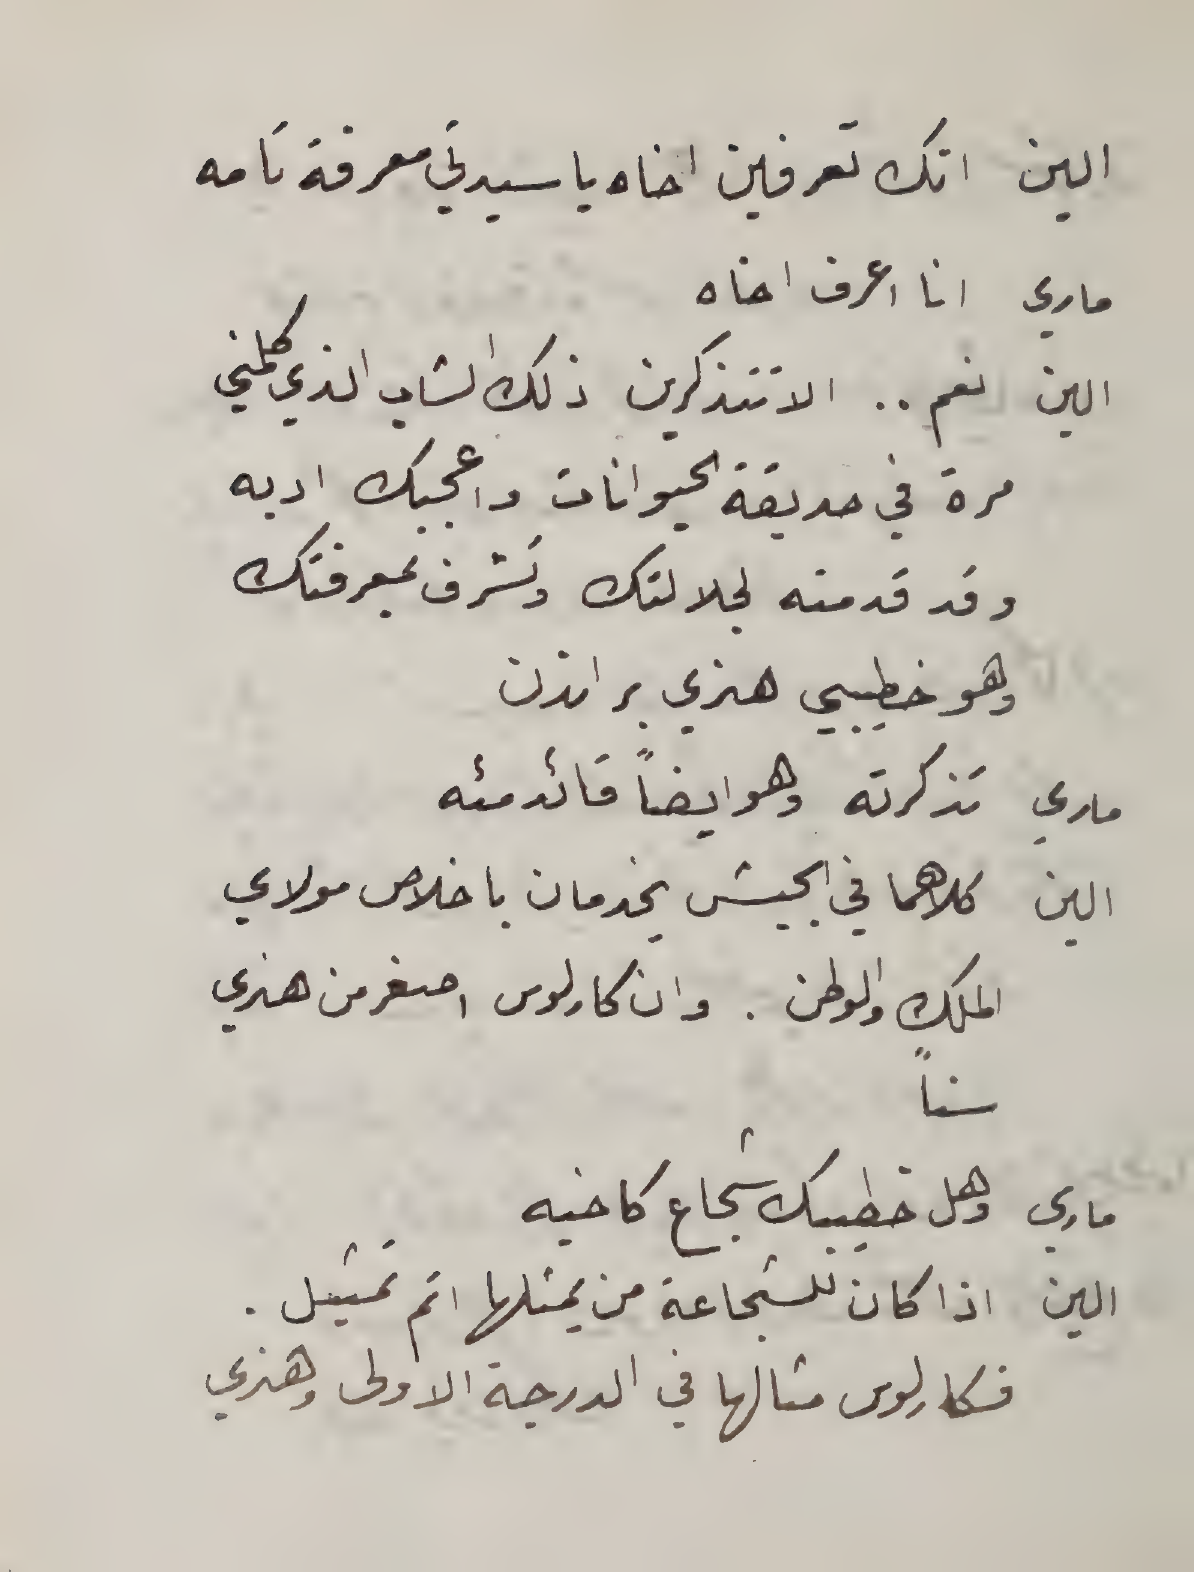 الين انك تعرفين اخاه يا سيدتي معرفة تامه
ماري انا اعرف اخاه
الين نعم .. الا تتذكرين ذلك الشاب الذي كلمني
مرة في حديقة الحيوانات واعجبك ادبه
وقد قدمته لجلالتك وتشرف بمعرفتك
وهو خطيبي هنري براندن
ماري تذكرته وهو ايضاً قائد مئه
الين كلاهما في الجيش يخدمان باخلاص مولاي
الملك والوطن . وان كارلوس اصغر من هنري
سناً
ماري وهل خطيبك شجاع كاخيه
الين اذا كان للشجاعة من يمثلها اتم تمثيل .
فكارلوس مثالها في الدرجة الاولى وهنري